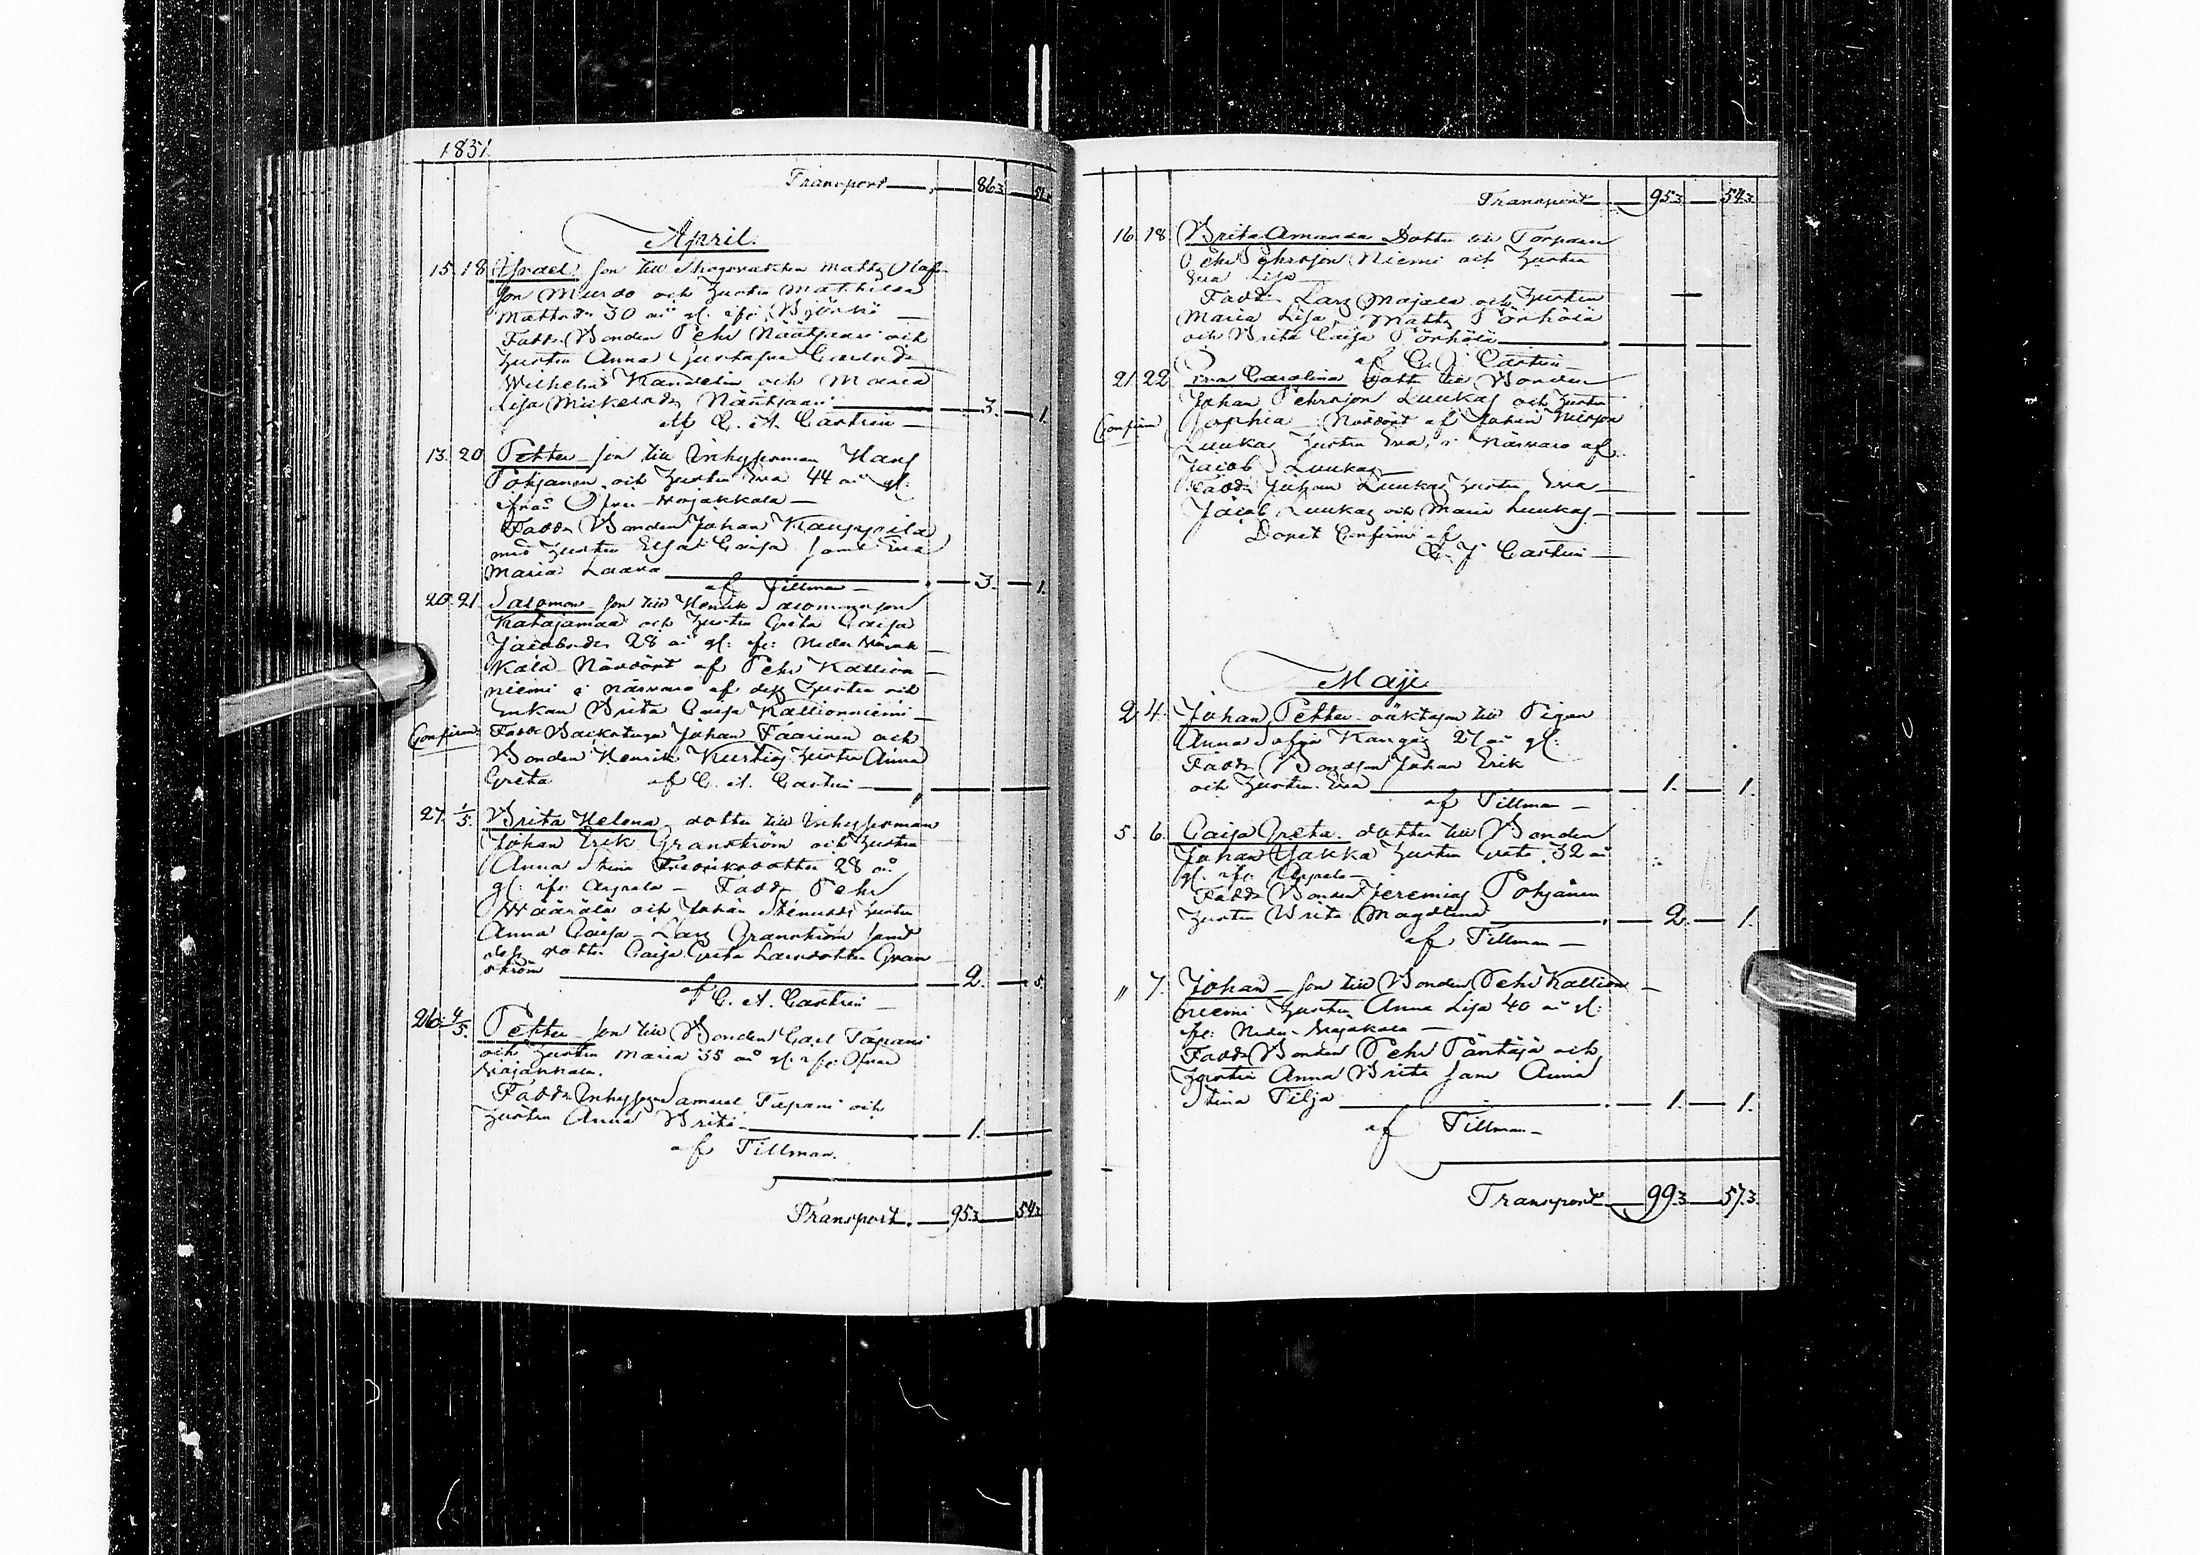 1831
Transport 863 51.
April.
15. 18. Israel son till Skogvakten Matts Olaf-
son Murdo och Hustru Mathilda
Mattsdr 30 år gl. ifr. Björkö
Fadd. Bonden Pehr Näätsaari och
Hustru Anna Gustafva Carlsdr
Wilhelm Kandelin och Maria
Lisa Mickelsdr Näätsaari 3. 1.
af C. A. Castrén
13. 20. Petter son till Inhysesman Hans
Pohjanen och Hustru Eva 44 år gl:
ifrån Öfver Wojakkala
Fadd. Bonden Johan Kauppila
med Hustru Elsa Caisa samt Eva
Maria Laara 3. 1.
af Tillman
20. 21. Salomon son till Henrik Salomonsson
Katajamaa och Hustru Greta Caisa
Jacobsdr 28 år gl: ifr: Neder Wojak-
kala Nöddöpt af Pehr Kallion
niemi i närvaro af dess Hustru och
Enkan Brita Caisa Kallionniemi
Confirm: Fadd. Backstugu Johan Faarinen och
Bonden Henrik Kurtios Hustru Anna
Greta af C. A. Castrén
27. 1/5. Brita Helena dotter till Inhysesman
Johan Erik Granström och Hustru
Anna Stina Fredriksdotter 28 år
gl: ifr: Arpela Fadd. Pehr
Wäärälä och Johan Hustru
Anna Caisa Lars Granström samt
dess dotter Caisa Greta Larsdotter Gran
ström 2. 5.
af C. A. Castrén
26. 4/5. Petter son till Bonden Carl Tapani
och Hustru Maria 35 år gl: ifr: Öfver
Wojakkala.
Fadd. Inhyses Samuel Tapani och
Hustru Anna Brita 1.
af Tillman.
Transport. 953 543
Transport 953 543
16. 18. Brita Amanda Dotter till Torparen
Pehr Pehrsson Niemi och Hustru
Eva Lisa
Fadd. Lars Majala och Hustru
Maria Lisa, Matts Pörhölä
och Brita Caisa Pörhölä
af C. J. Castrén
21. 22. Eva Carolina dotter till Bonden
Johan Pehrsson Luukas och Hustru
Confirm Sophia Nöddöpt af Johan Nilsson
Luukas Hustru Eva, i närvaro af
Jacob Luukas
Fadd. Johan Luukas Hustru Eva
Jacob Luukas och Maria Luukas
Dopet Confirm: af
C. J. Castrén
Maji
2. 4. Johan Petter oäkta son till Pigan
Anna Sofia Kangas 27 år gl:
Fadd. Bondson Johan Erik
och Hustru Eva 1. 1.
af Tillman
5. 6. Caisa Greta dotter till Bonden
Johan Jakka Hustru Greta 32 år
gl. ifr. Arpela
Fadd. Bonden Jeremias Pohjanen
Hustru Brita Magdlena 2. 1.
af Tillman
" 7. Johan son till Bonden Pehr Kallion
niemi Hustru Anna Lisa 40 år gl:
ifr: Neder Wojakala
Fadd. Bonden Pehr Päntäjä och
Hustru Anna Brita samt Anna
Stina Pilja 1. 1.
af Tillman
Transport 993 573.